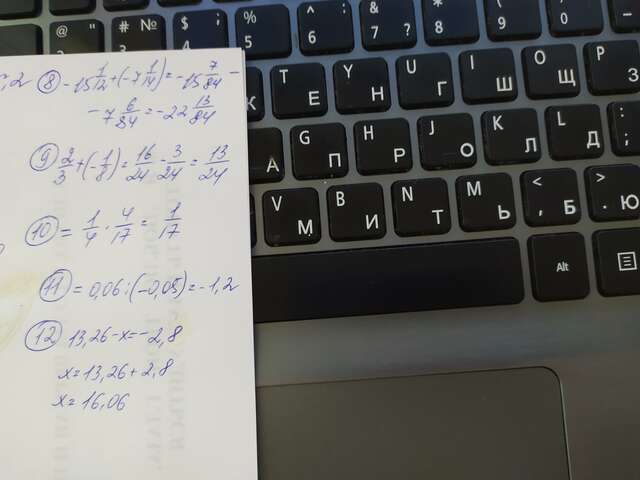 ,2 ⑧ -15 1/12 + (-7 1/14) = -15 7/84 -
- 7 6/84 = -22 13/84
⑨ 2/3 + (-1/8) = 16/24 - 3/24 = 13/24
⑩ = 1/4 · 4/17 = 1/17
⑪ = 0,06 : (-0,05) = -1,2
⑫ 13,26 - x = -2,8
x = 13,26 + 2,8
x = 16,06
@ 2 " # № 3 $ 4 ; % 5 ^ : 6 & ? 7 * 8 ( 9 ) 0 _ -
К T Е Y Н U Г I Ш O Щ P З
А G П H Р J О K Л L Д : ;
V М B И N Т M Ь < , Б > . Ю
Alt